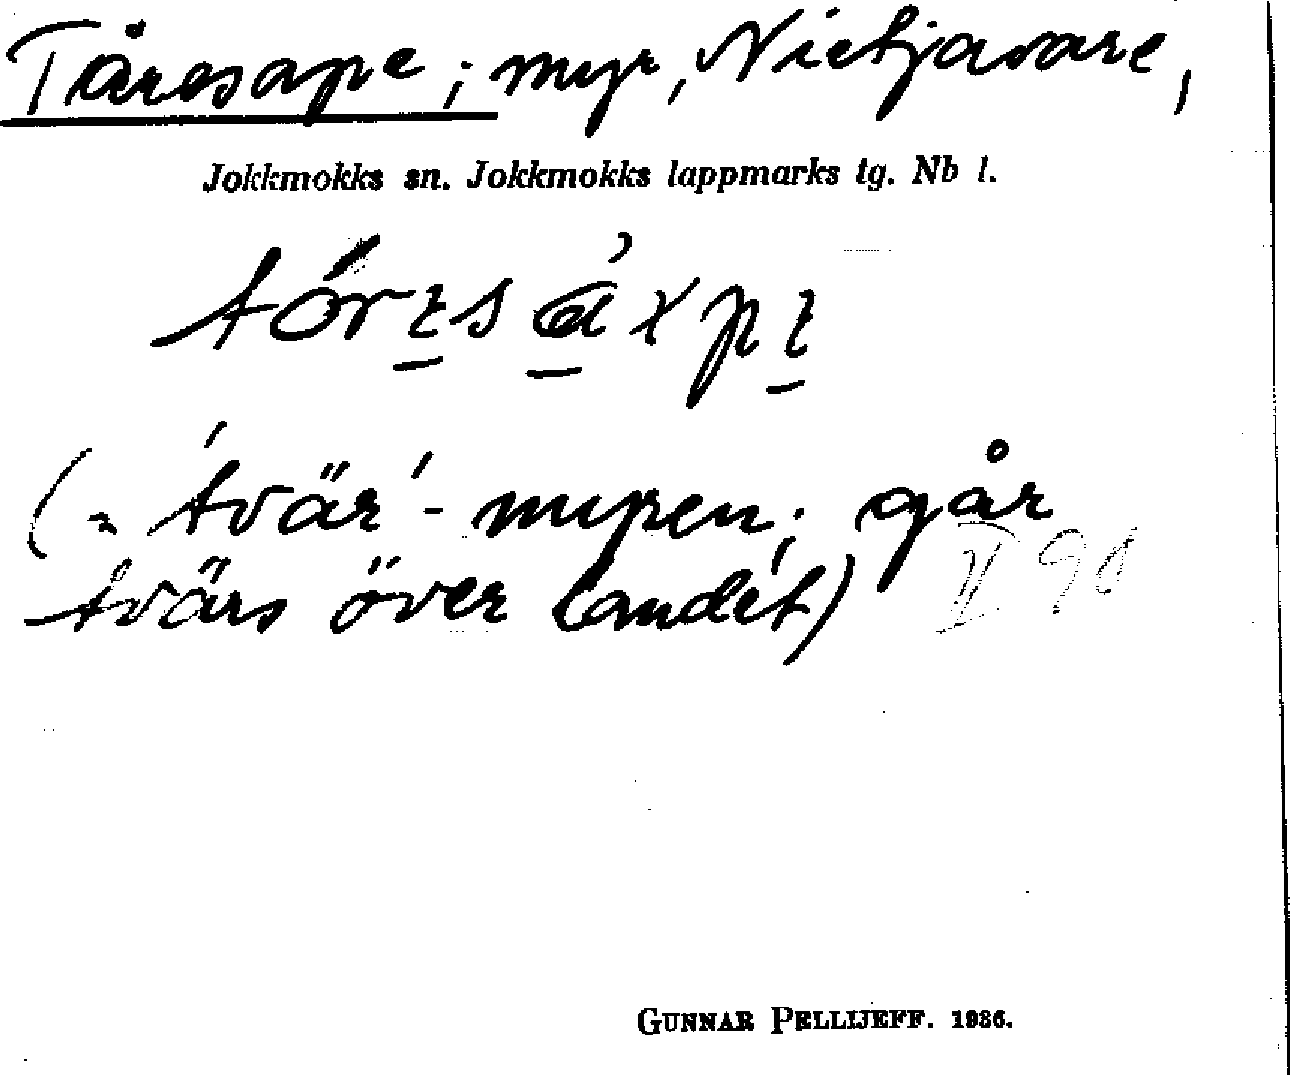 Tåresape; myr, Nietjavare,
Jokkmokks sn. Jokkmokks lappmarks tg. Nb l.
(= ´tvär´-myren; går
tvärs över landet) II 90
GUNNAR PELLIJEFF. 1936.